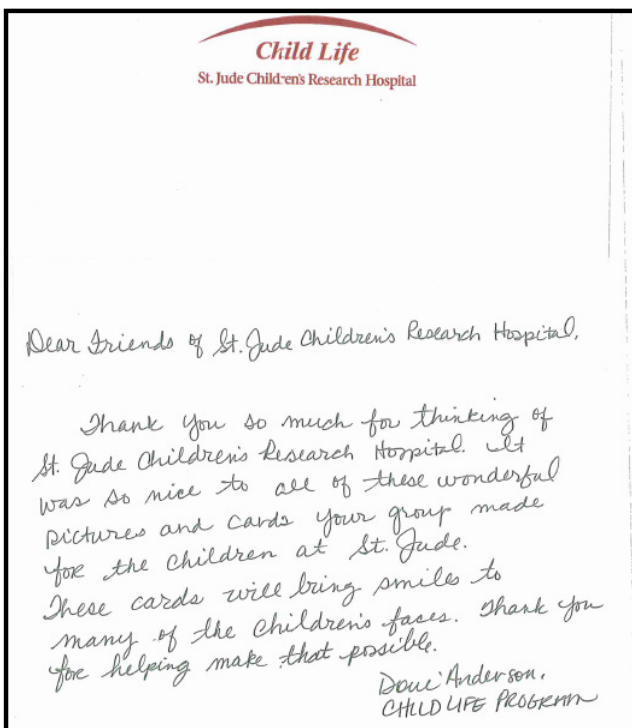 Child Life
St. Jude Children's Research Hospital
Dear Friends of St. Jude Children's Research Hospital,
Thank you so much for thinking of
St. Jude Children's Research Hospital. It
was so nice to all of these wonderful
pictures and cards your group made
for the children at St. Jude.
These cards will bring smiles to
many of the children's faces. Thank you
for helping make that possible.
Anderson,
CHILD LIFE PROGRAM